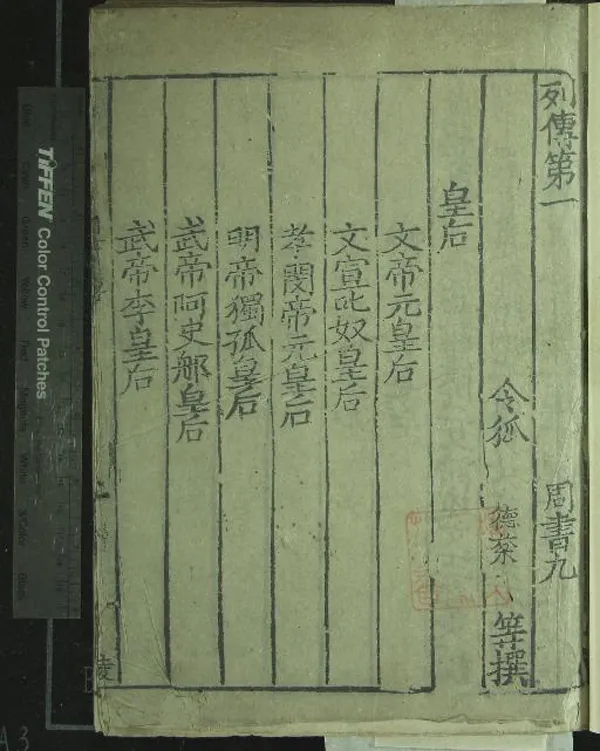 列傳第一 周書九
令狐 德棻 等撰
皇后
文帝元皇后
文宣叱奴皇后
孝閔帝元皇后
明帝獨孤皇后
武帝阿史那皇后
武帝李皇后
TIFFEN Color Control Patches